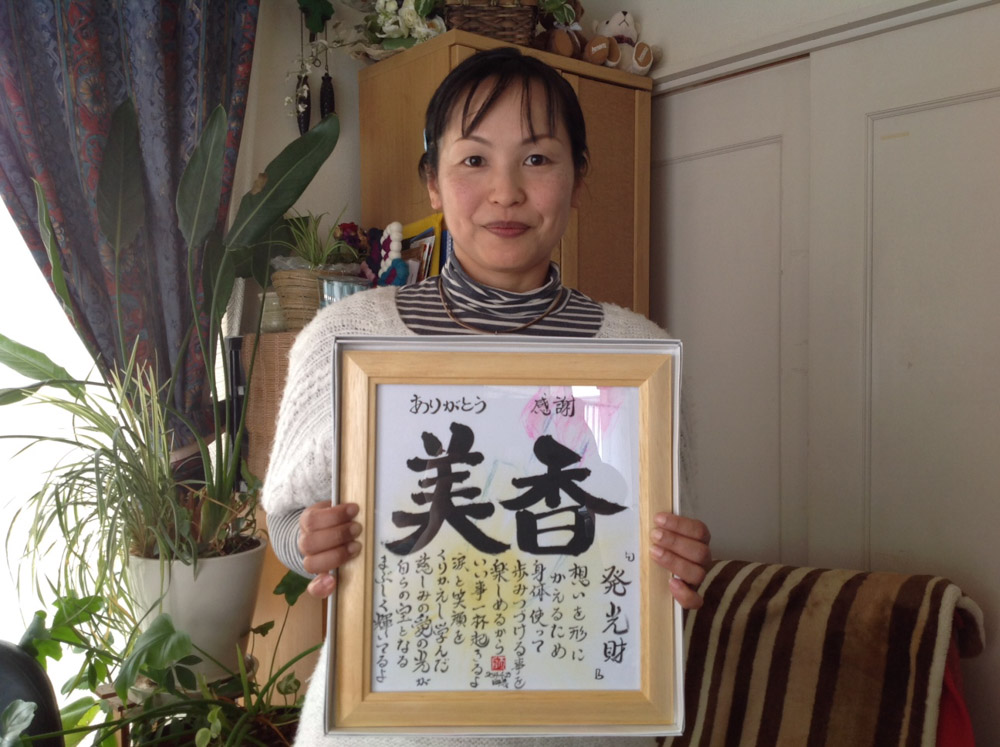 ありがとう 感謝
美香
『発光財』
想いを形に
かえるため
身体使って
歩みつづける事を
楽しめるから
いい事一杯起きるよ
涙と笑顔を
くりかえし学んだ
慈しみの愛の光が
自らの宝となる
まぶしく輝いてるよ